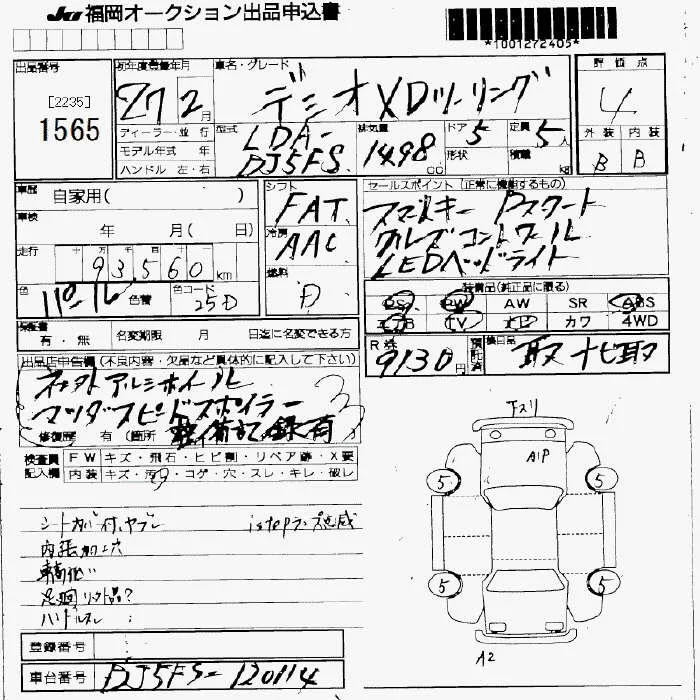 JU 福岡オークション出品申込書
*1001272405*
出品番号
[2235]
1565
初年度登録年月
27 2月
車名・グレード
デミオ XDツーリング
評価点
4
外装 内装
B B
ディーラー・並行
モデル年式 年
ハンドル 左・右
型式
LDA-
DJ5FS
排気量
1498
cc
ドア
5
形状
定員
5人
積載
kg
車歴
自家用( )
車検
年 月( 日)
走行
十 万 千 百 十
93,560 km
色
パール
色替
色コード
25D
シフト
FAT
冷房
AAC
燃料
D
セールスポイント (正常に機能するもの)
スマートキー Pスタート
クルーズコントロール
LEDヘッドライト
装備品(純正品に限る)
PS PW AW SR ABS
エアB TV ナビ カワ 4WD
保証書
有・無
名変期限 月 日迄に名変できる方
R券
9130円
預託済
検口品
取 ナビ取
出品店申告欄 (不良内容・欠品など具体的に記入して下さい)
社外アルミホイール
マツダスピードスポイラー
修復歴 有 (箇所
整備記録有
検査員記入欄
FW キズ・飛石・ヒビ割・リペア跡・X要
内装 キズ・汚・コゲ・穴・スレ・キレ・破レ
シートカバー付、ヤブレ
istopランプ点滅
内張加工穴
車高低い
足廻り社外品?
ハンドルスレ
下スリ
A1P
5 5
5 5
A2
登録番号
車台番号
DJ5FS-120114